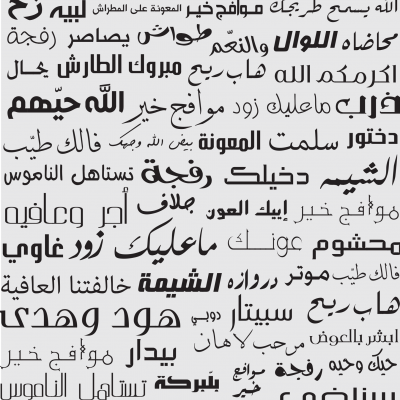 الله يسمح طريجك موافج خير المعونة على المطراش لبيه زخ
محاضاه اللوال والنعم طواش يصاصر رفجة
اكرمكم الله هاب ريح مبروك الطارش يحال
ذرب ماعليك زود موافج خير الله حيّهم
دختور سلمت المعونة بيض الله وجهك فالك طيّب
الشيمه دخيلك رفجة تستاهل الناموس
موافج خير إبيك العون جلاف أجر وعافيه
محشوم عونك ماعليك زود غاوي
فالك طيّب موتر دروازه الشيمة خالفتنا العافية
هاب ريح سبيتار دوبي هود وهدى
ابشر بالعوض مرحب لاهان بيدار موافج خير
حيك وحيه رفجة موافج خير بلبركة تستاهل الناموس